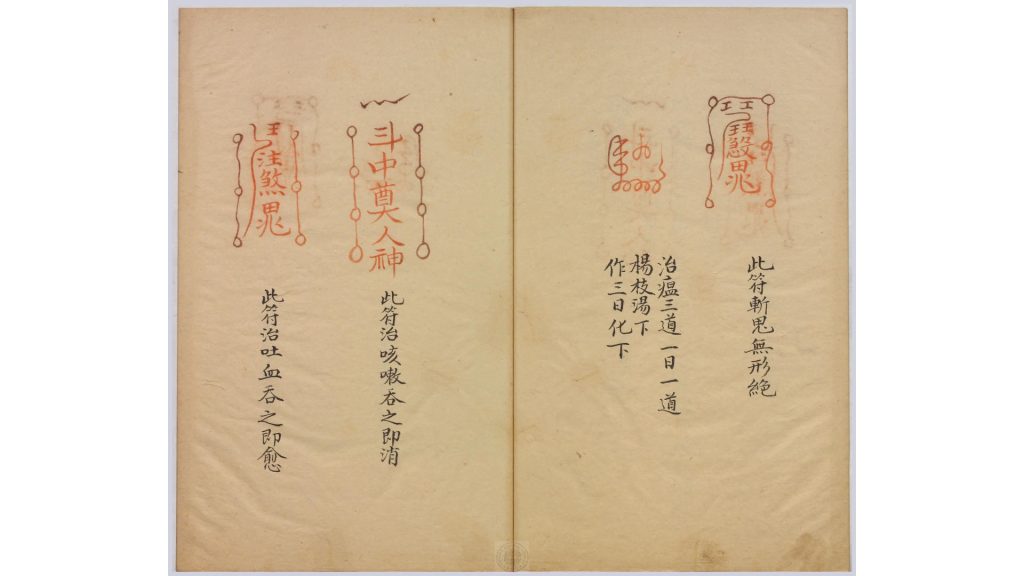 此符斬鬼無形絶
治瘟三道一日一道
楊枝湯下
作三日化下
斗中奠人神
此符治咳嗽吞之即消
注煞
此符治吐血吞之即愈